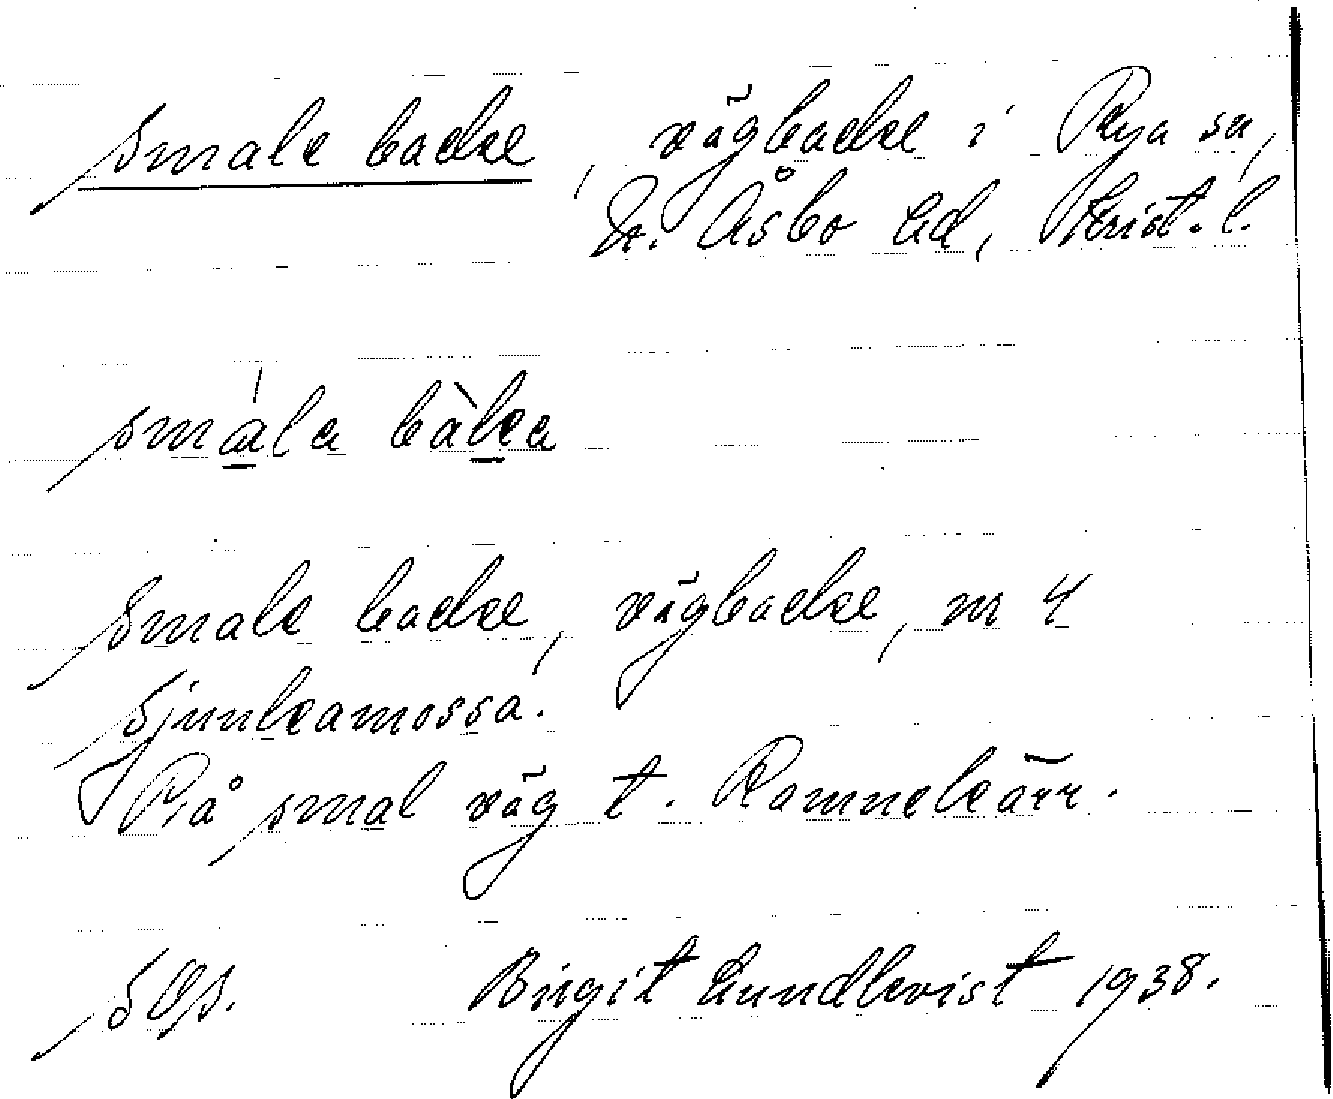 Smale backe, vägbacke i Rya sn,
N. Åsbo hd, Krist. l.
smàla bàka
Smale backe, vägbacke, nr 4
Sjunkamossa.
På smal väg t. Ramnekärr.
Birgit Lundkvist 1938.